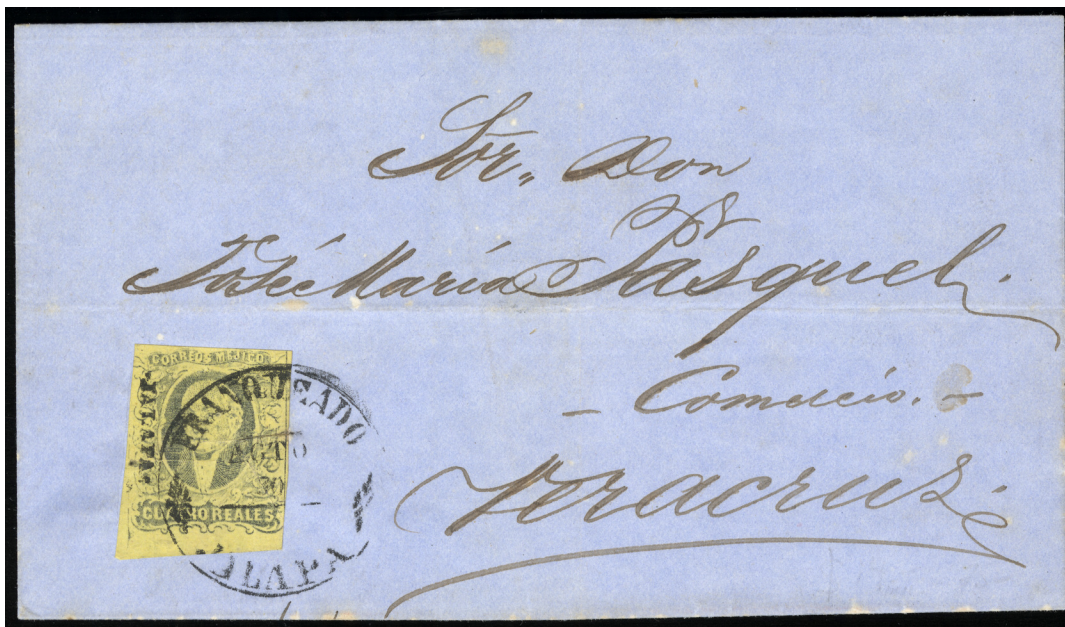 Sõr,, Don
José María Pasquel.
- Comercio. -
Veracruz.
CORREOS MEJICO
JALAPA
CUATRO REALES
FRANQUEADO
AGTO
30
JALAPA